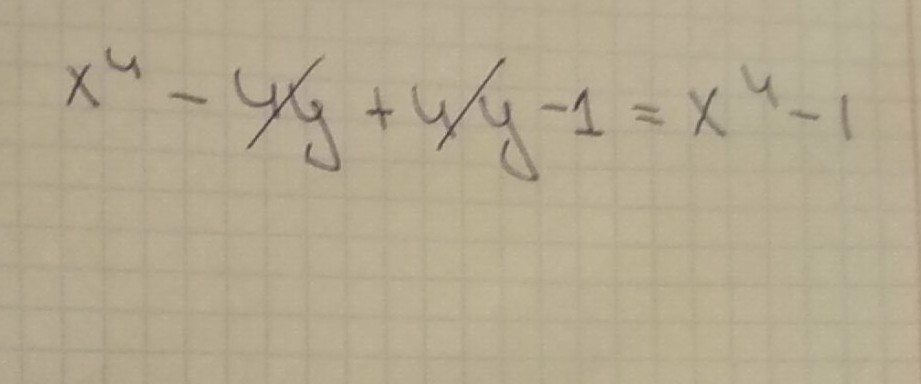 x⁴ - 4y + 4y - 1 = x⁴ - 1